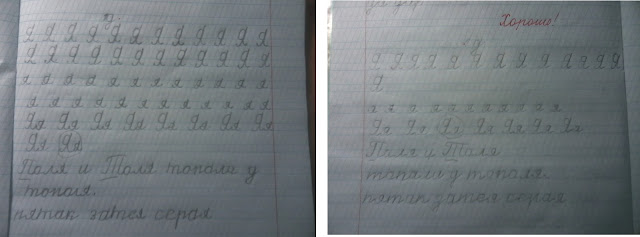 Я Я Я Я Я Я Я Я Я Я Я Я
Я Я Я Я Я Я Я Я Я Я Я Я
я я я я я я я я я я я я я
я я я я я я я я я я я я
Яя Яя Яя Яя Яя Яя Яя Яя
Яя Яя
Поля и Толя топали у
тополя.
пятак затея серая
Хорошо!
Я Я Я Я Я Я Я Я Я Я Я Я Я
Я
я я я я я я я я я я я
Яя Яя Яя Яя Яя Яя Яя
Поля и Толя
топали у тополя.
пятак затея серая